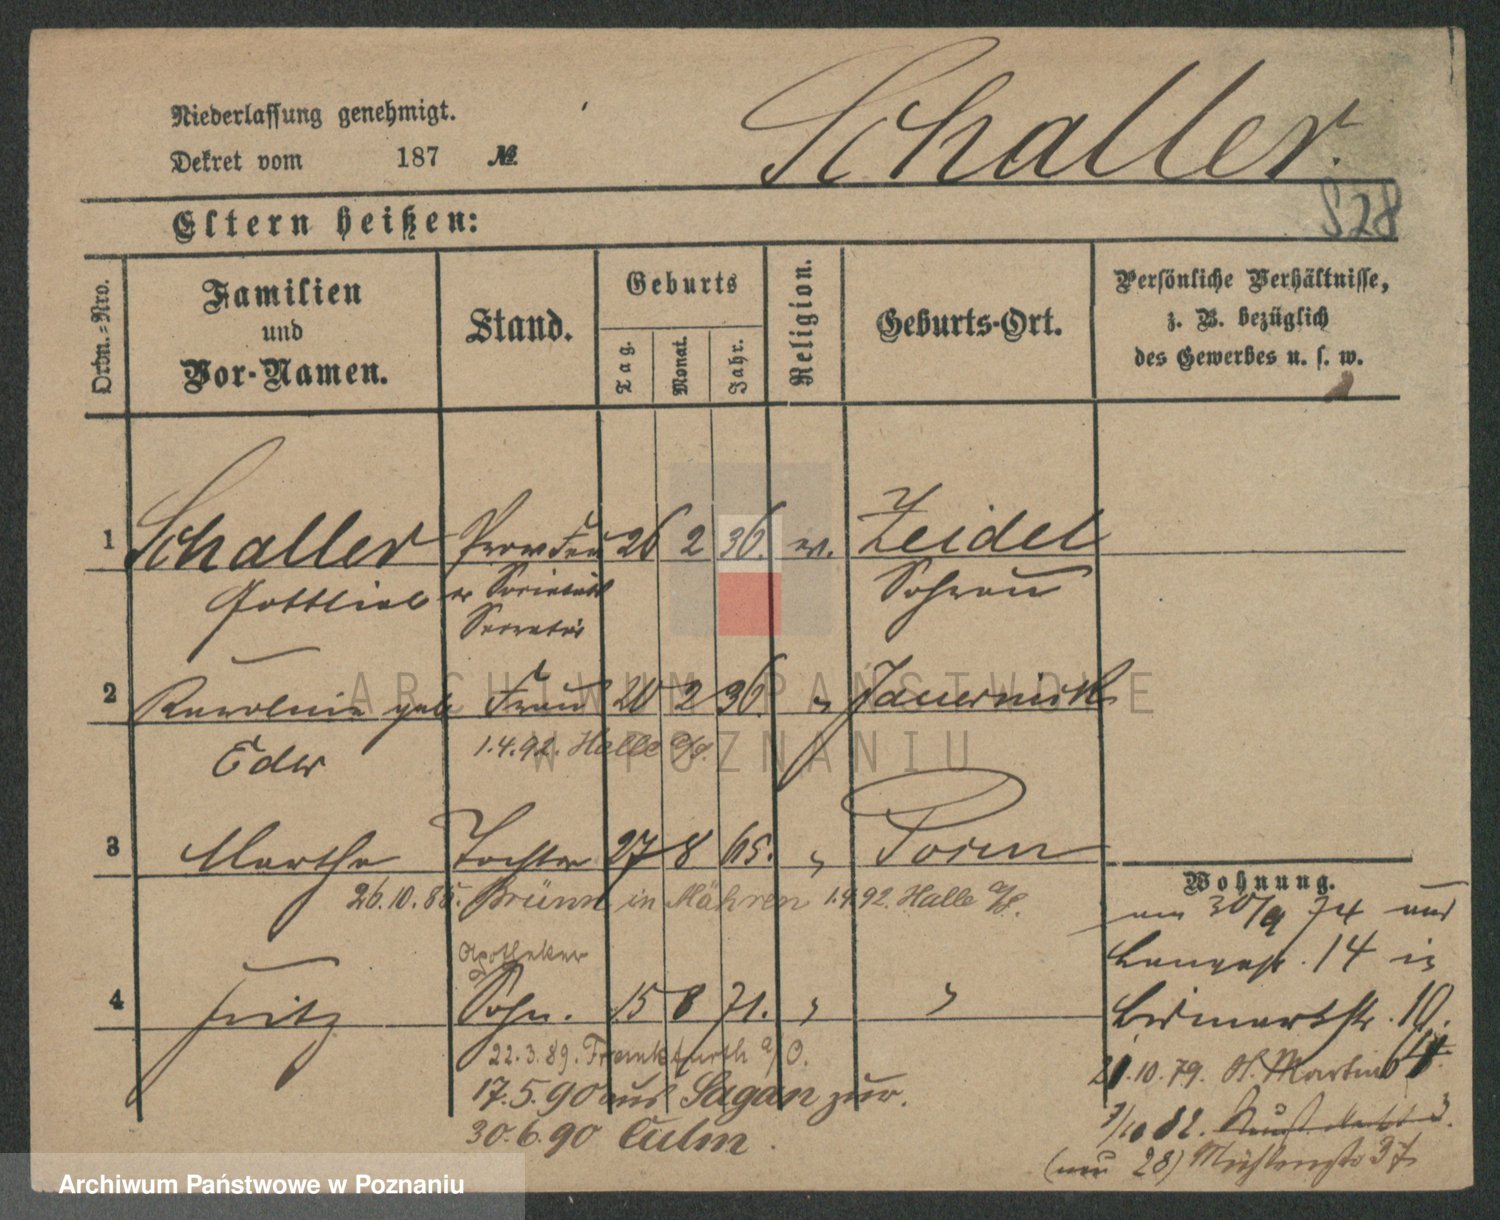 Niederlassung genehmigt.
Schaller.
Dekret vom 187 №
828
Eltern heißen:
Ordn.-Nro.
Familien und Vor-Namen.
Stand.
Geburts
Tag.
Monat.
Jahr.
Religion.
Geburts-Ort.
Persönliche Verhältnisse,
z. B. bezüglich
des Gewerbes u. s. w.
1 Schaller Prov Feu 26 2 36. ev. Zeidel
Gottlieb er Societäts Sohrau
Secretär
2 Karoline geb Frau 20 2 36. " Jauernick
Eder 1.4.92. Halle a/S.
3 Marthe Tochter 27 8 65. " Posen
26.10.85. Brünn in Mähren 1.4.92. Halle a/S.
Wohnung.
am 30/9 74 von
Apotheker
Langestr. 14 in
4 Fritz Sohn. 15 8 71. " "
Bismarkstr. 10.
22.3.89. Frankfurth a/O.
21.10.79. St. Martin
17.5.90 aus Sagan zur.
30.6.90 Culm.
3/10 82.
(neu 28) Mühlenstr 37
ARCHIWUM PAŃSTWOWE
W POZNANIU
Archiwum Państwowe w Poznaniu